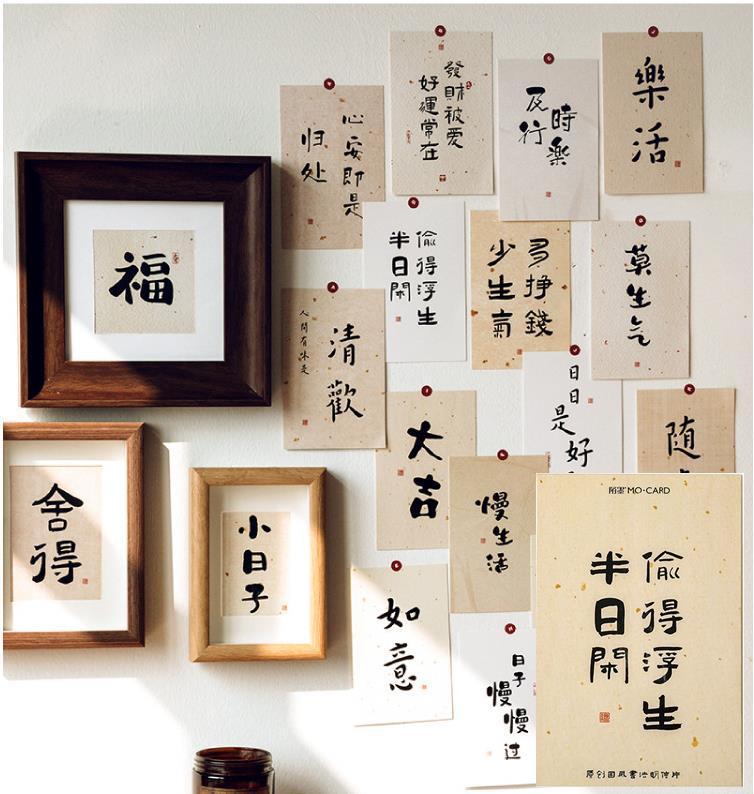 樂活
及時
行樂
發財被爱
好運常在
心安即是
归处
福
偷得浮生
半日閑
多掙錢
少生氣
莫生气
人間有味是
清歡
日日是好
随
大吉
慢生活
舍得
小日子
如意
日子
慢慢过
陌墨 MO·CARD
偷得浮生
半日閑
原创国风書法明信片